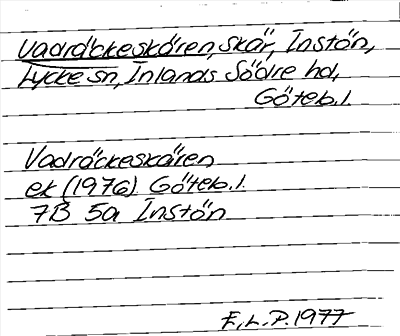 Vadräckeskären, skär, Instön,
Lycke sn, Inlands Södre hd,
Göteb. l.
Vadräckeskären
ek (1976) Göteb. l.
7B 5a Instön
F. L. P. 1977